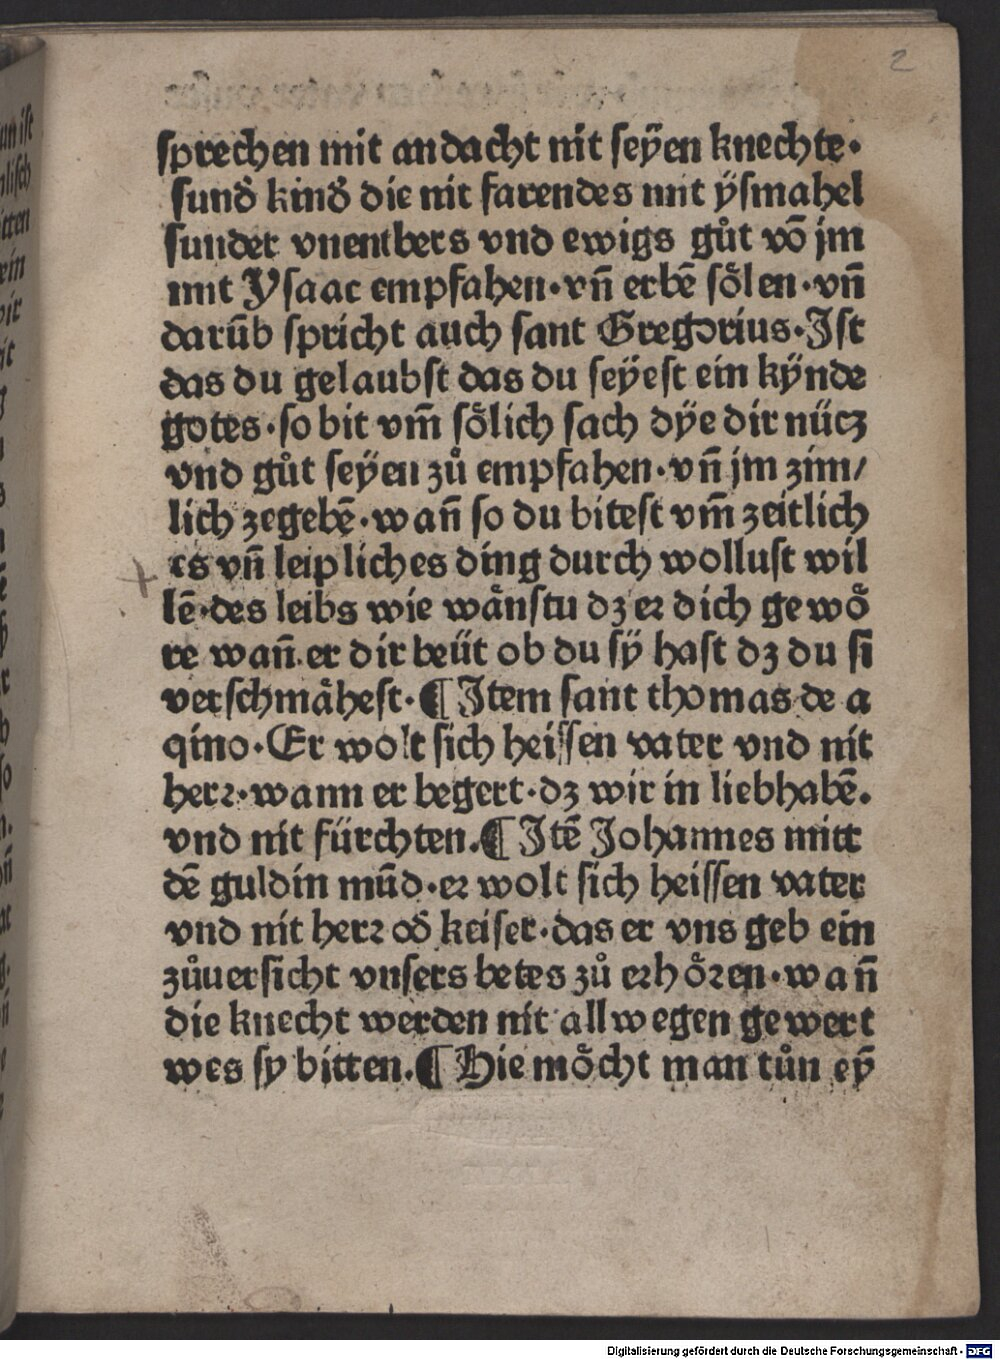 2
sprechen mit andacht nit seÿen knechte·
sund̕ kind̕ die nit farendes mit ÿsmahel
sunder vnentbers vnd ewigs gůt võ jm
mit Ysaac empfahen·vn̄ erbē sȯ̈len·vn̄
darūb spricht auch sant Gregorius·Jst
das du gelaubst das du seÿest ein kÿnde
gotes·so bit vm̄ sölich sach dÿe dir nücz
vnd gůt seÿen zů empfahen·vn̄ jm zim/
lich zegebē·wan̄ so du bitest vm̄ zeitlich
es vn̄ leipliches ding durch wollust wil
lē·des leibs wie wänstu dz er dich gewö
re wan̄.er dir beüt ob du sÿ hast dz du si
verschmähest·¶ Jtem sant thomas de a
qino·Er wolt sich heissen vater vnd nit
herr·wann er begert·dz wir in liebhabē.
vnd nit fürchten.¶ Jtē Johannes mitt
dē guldin mūd·er wolt sich heissen vater
vnd nit herr od̕ keiser·das er vns geb ein
zůuersicht vnsers betes zů erhören·wan̄
die knecht werden nit allwegen gewert
wes sy bitten.¶ Hie möcht man tůn eȳ
Digitalisierung gefördert durch die Deutsche Forschungsgemeinschaft - DFG